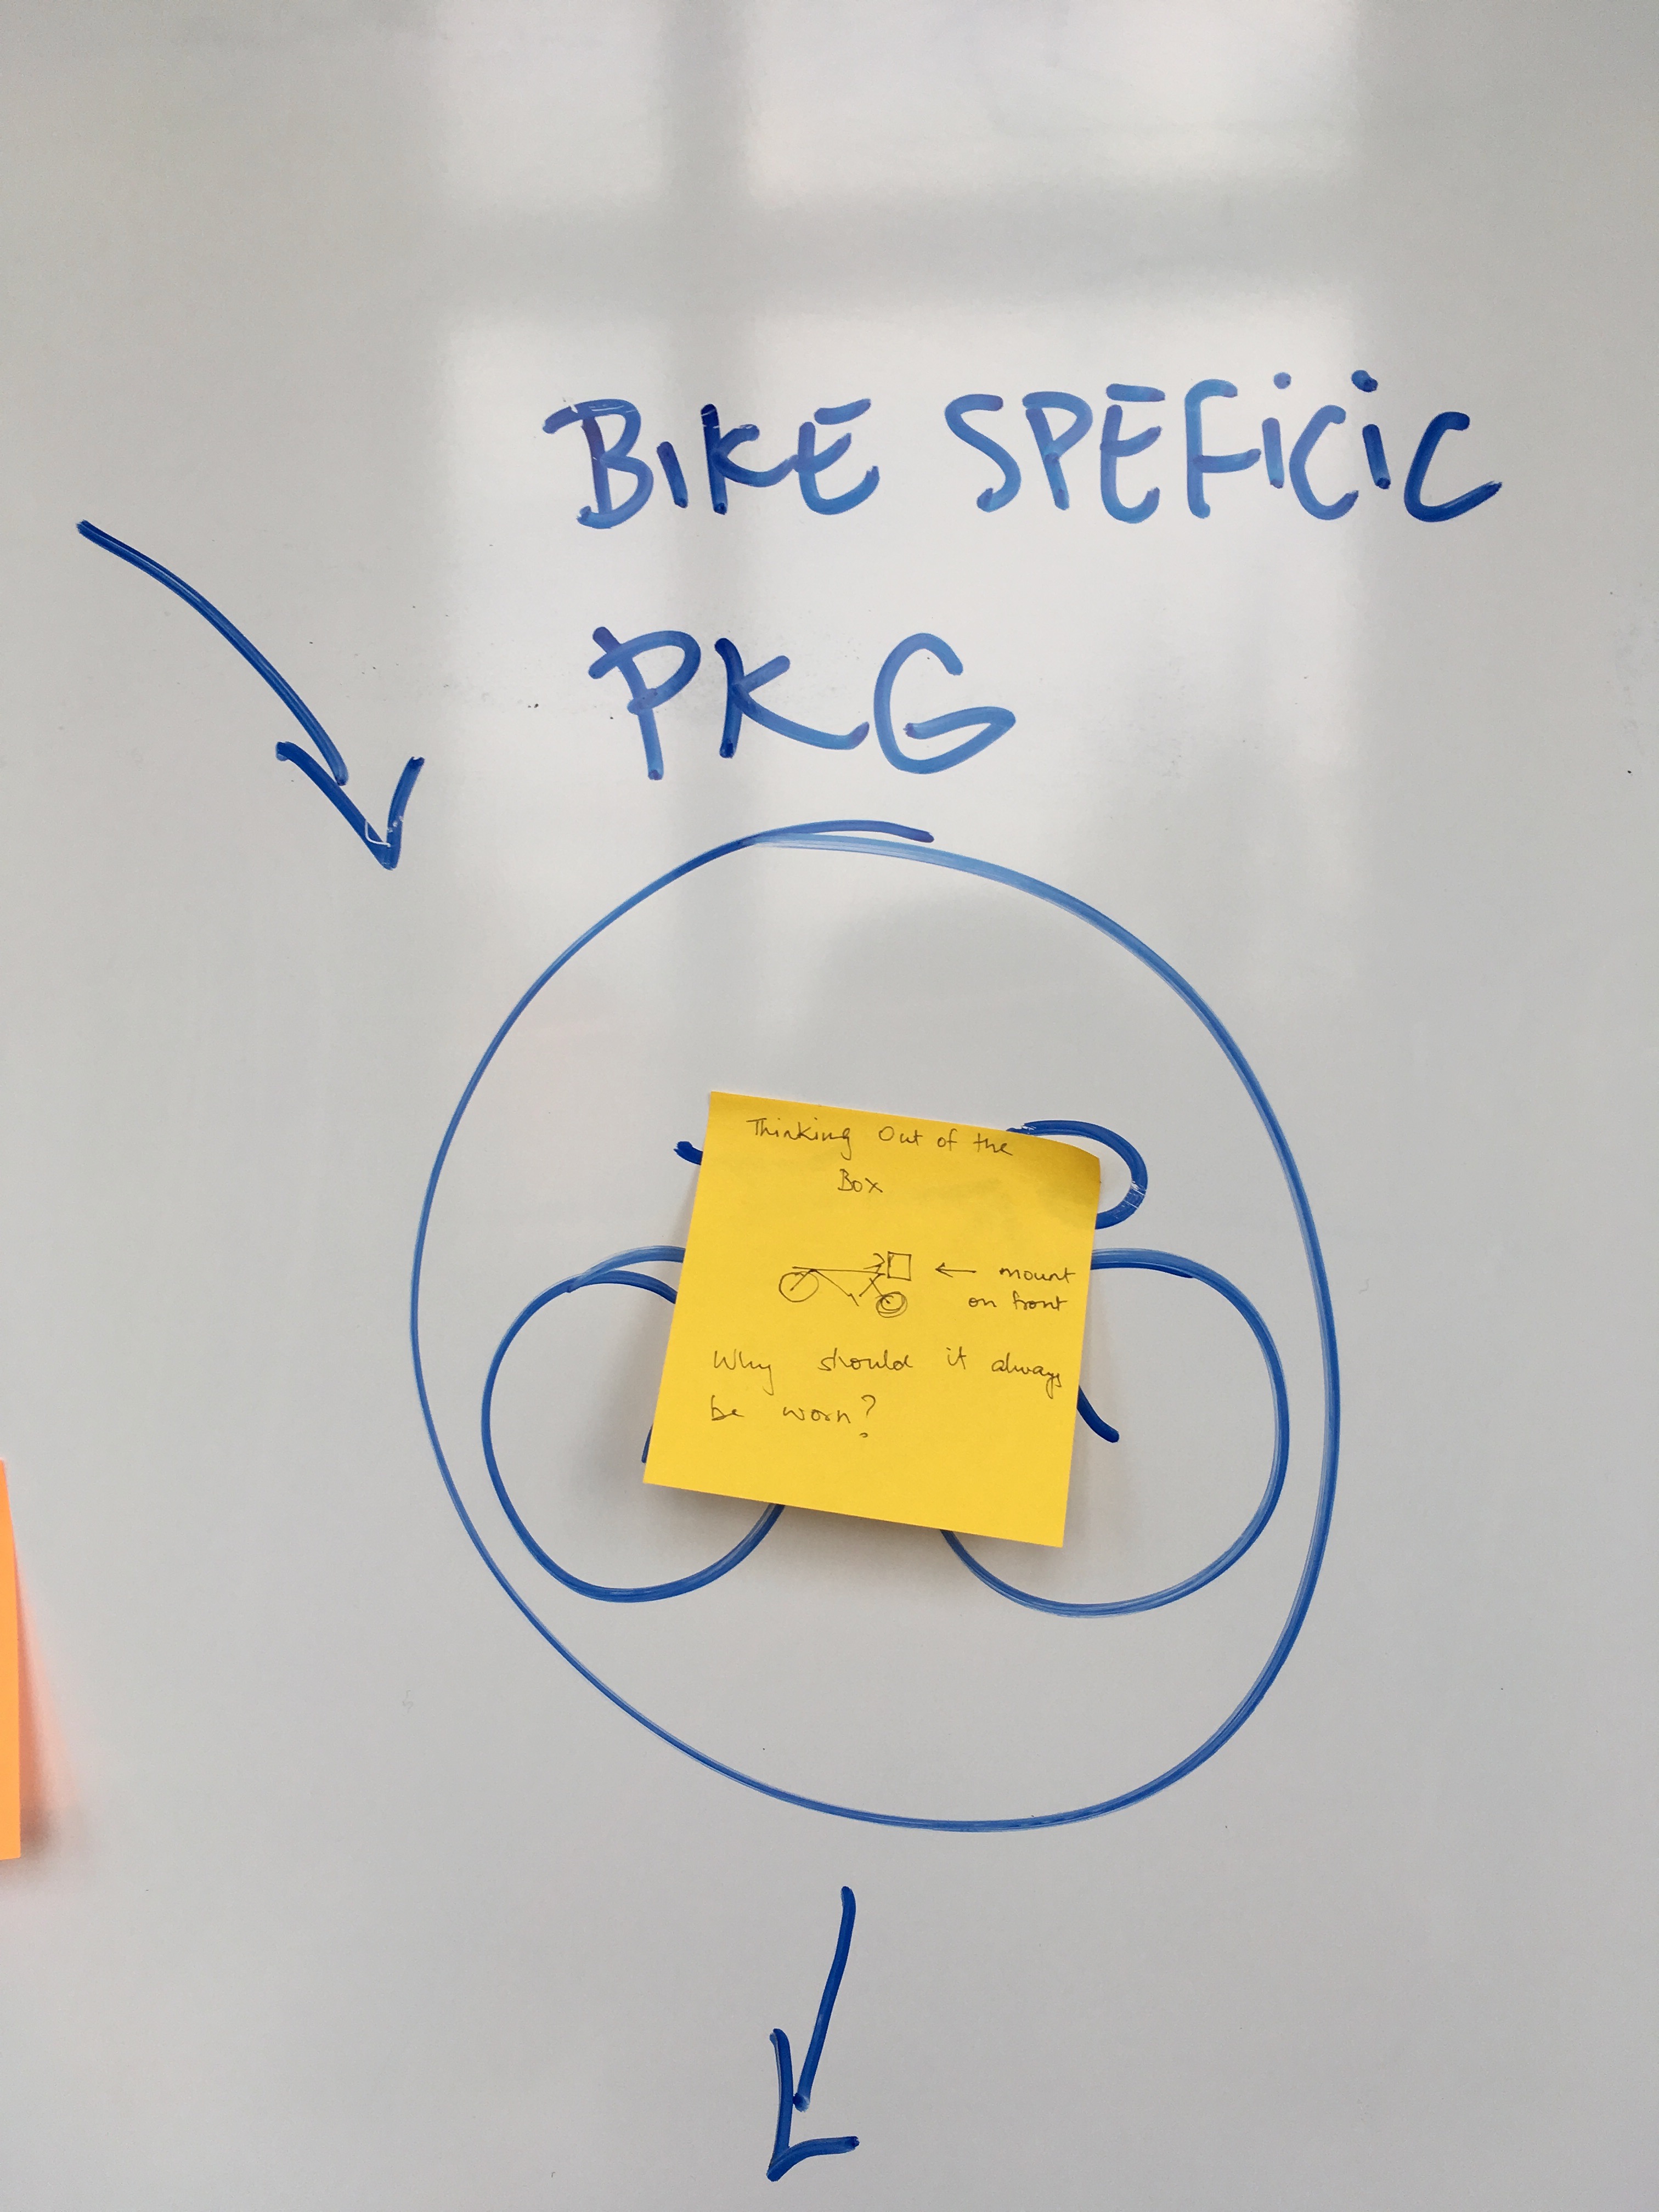 BIKE SPEFICIC
PKG
Thinking Out of the
Box
mount
on front
Why should it always
be worn?